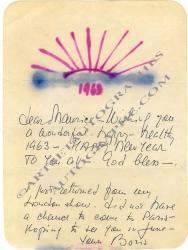 1963
Dear Maurice - Wishing you
a wonderful - happy - healthy
1963 - HAPPY New year
To you all God bless -.
I just returned from my
London show. Did not have
a chance to come to Paris -
Hoping to see you in June -
Your Boris